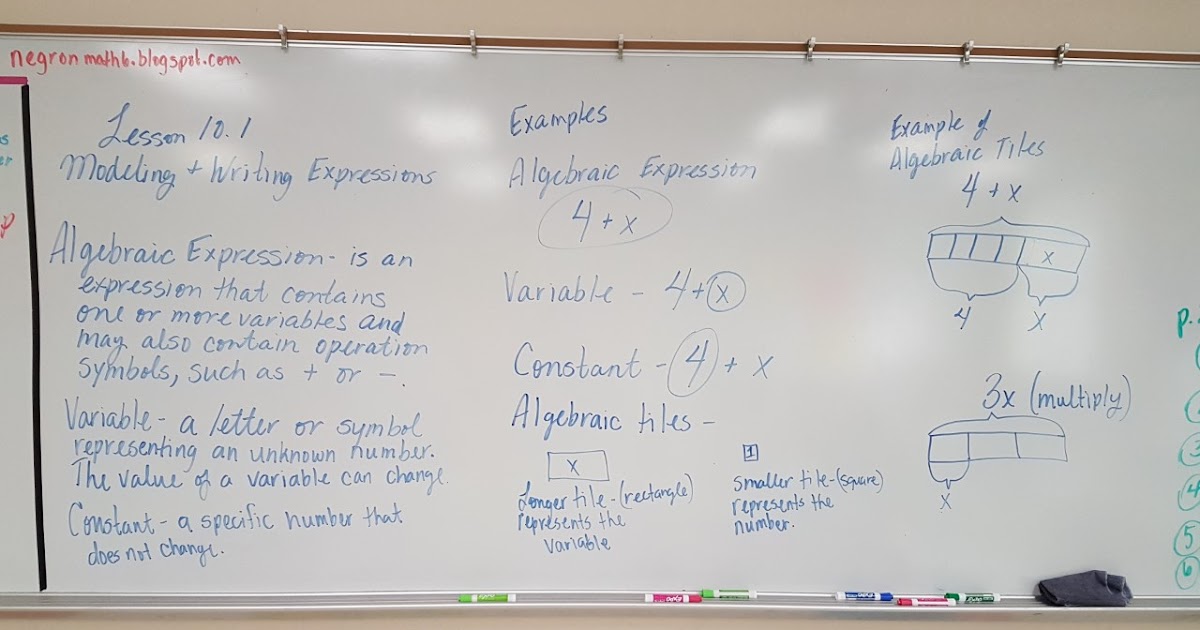 negronmath6.blogspot.com
Lesson 10.1
Modeling + Writing Expressions
Algebraic Expression - is an
expression that contains
one or more variables and
may also contain operation
symbols, such as + or -.
Variable - a letter or symbol
representing an unknown number.
The value of a variable can change.
Constant - a specific number that
does not change.
Examples
Algebraic Expression
4 + x
Variable - 4 + x
Constant - 4 + x
Algebraic tiles -
x
Longer tile - (rectangle)
represents the
variable
1
smaller tile - (square)
represents the
number.
Example of
Algebraic Tiles
4 + x
x
4 x
3x (multiply)
x
p.
3
4
5
6